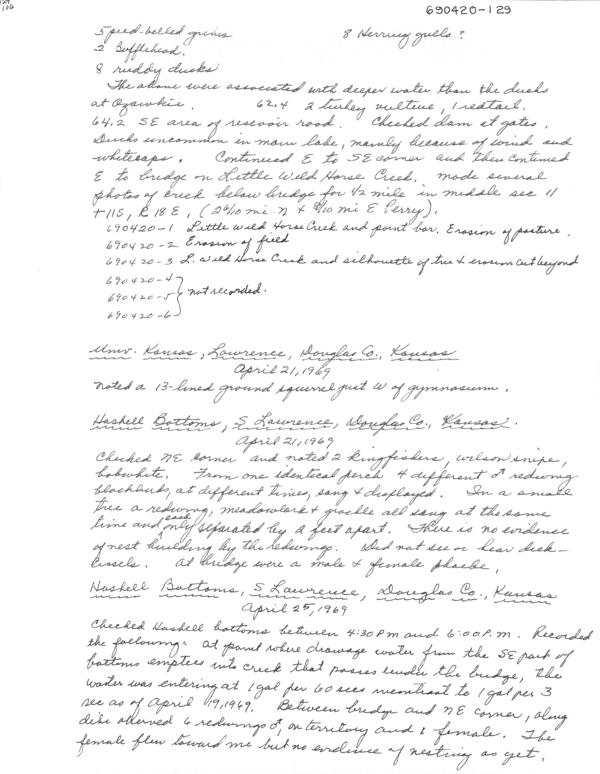 690420-129
5 pied-billed grebes 8 Herring gulls?
2 Bufflehead.
8 ruddy ducks
The above were associated with deeper water than the ducks
at Ozawkie. 62.4 2 turkey vulture, 1 redtail.
64.2 SE area of resevoir road. Checked dam at gates.
Ducks uncommon in main lake, mainly because of wind and
whitecaps. Continued E to SE corner and then continued
E to bridge on Little Wild Horse Creek. made several
photos of creek below bridge for 1/2 mile in middle sec 11
T11S, R 18 E, (2 6/10 mi N & 8/10 mi E Perry).
690420-1 Little Wild Horse Creek and point bar. Erosion of pasture.
690420-2 Erosion of field
690420-3 L. Wild Horse Creek and silhouette of tree & erosion cut beyond
690420-4
690420-5 } not recorded.
690420-6
Univ. Kansas, Lawrence, Douglas Co., Kansas
April 21, 1969
Noted a 13-lined ground squirrel just W of gymnasium.
Haskell Bottoms, S Lawrence, Douglas Co., Kansas.
April 21, 1969
Checked NE corner and noted 2 kingfishers, wilson snipe,
bobwhite. From one identical perch 4 different ♂ redwing
blackbirds, at different times, sang & displayed. In a small
tree a redwing, meadowlark & grackle all sang at the same
time and each only separated by a feet apart. There is no evidence
of nest building by the redwings. Did not see or hear dick-
cissels. At bridge were a male & female phoebe.
Haskell Bottoms, S Lawrence, Douglas Co., Kansas
April 25, 1969
Checked Haskell bottoms between 4:30 P.M and 6:00 P.M. Recorded
the following: at point where drainage water from the SE part of
bottoms empties into creek that passes under the bridge, the
water was entering at 1 gal per 60 secs in contrast to 1 gal per 3
sec as of April 19, 1969. Between bridge and NE corner, along
dike observed 6 redwings ♂, on territory and 1 female. The
female flew toward me but no evidence of nesting as yet.